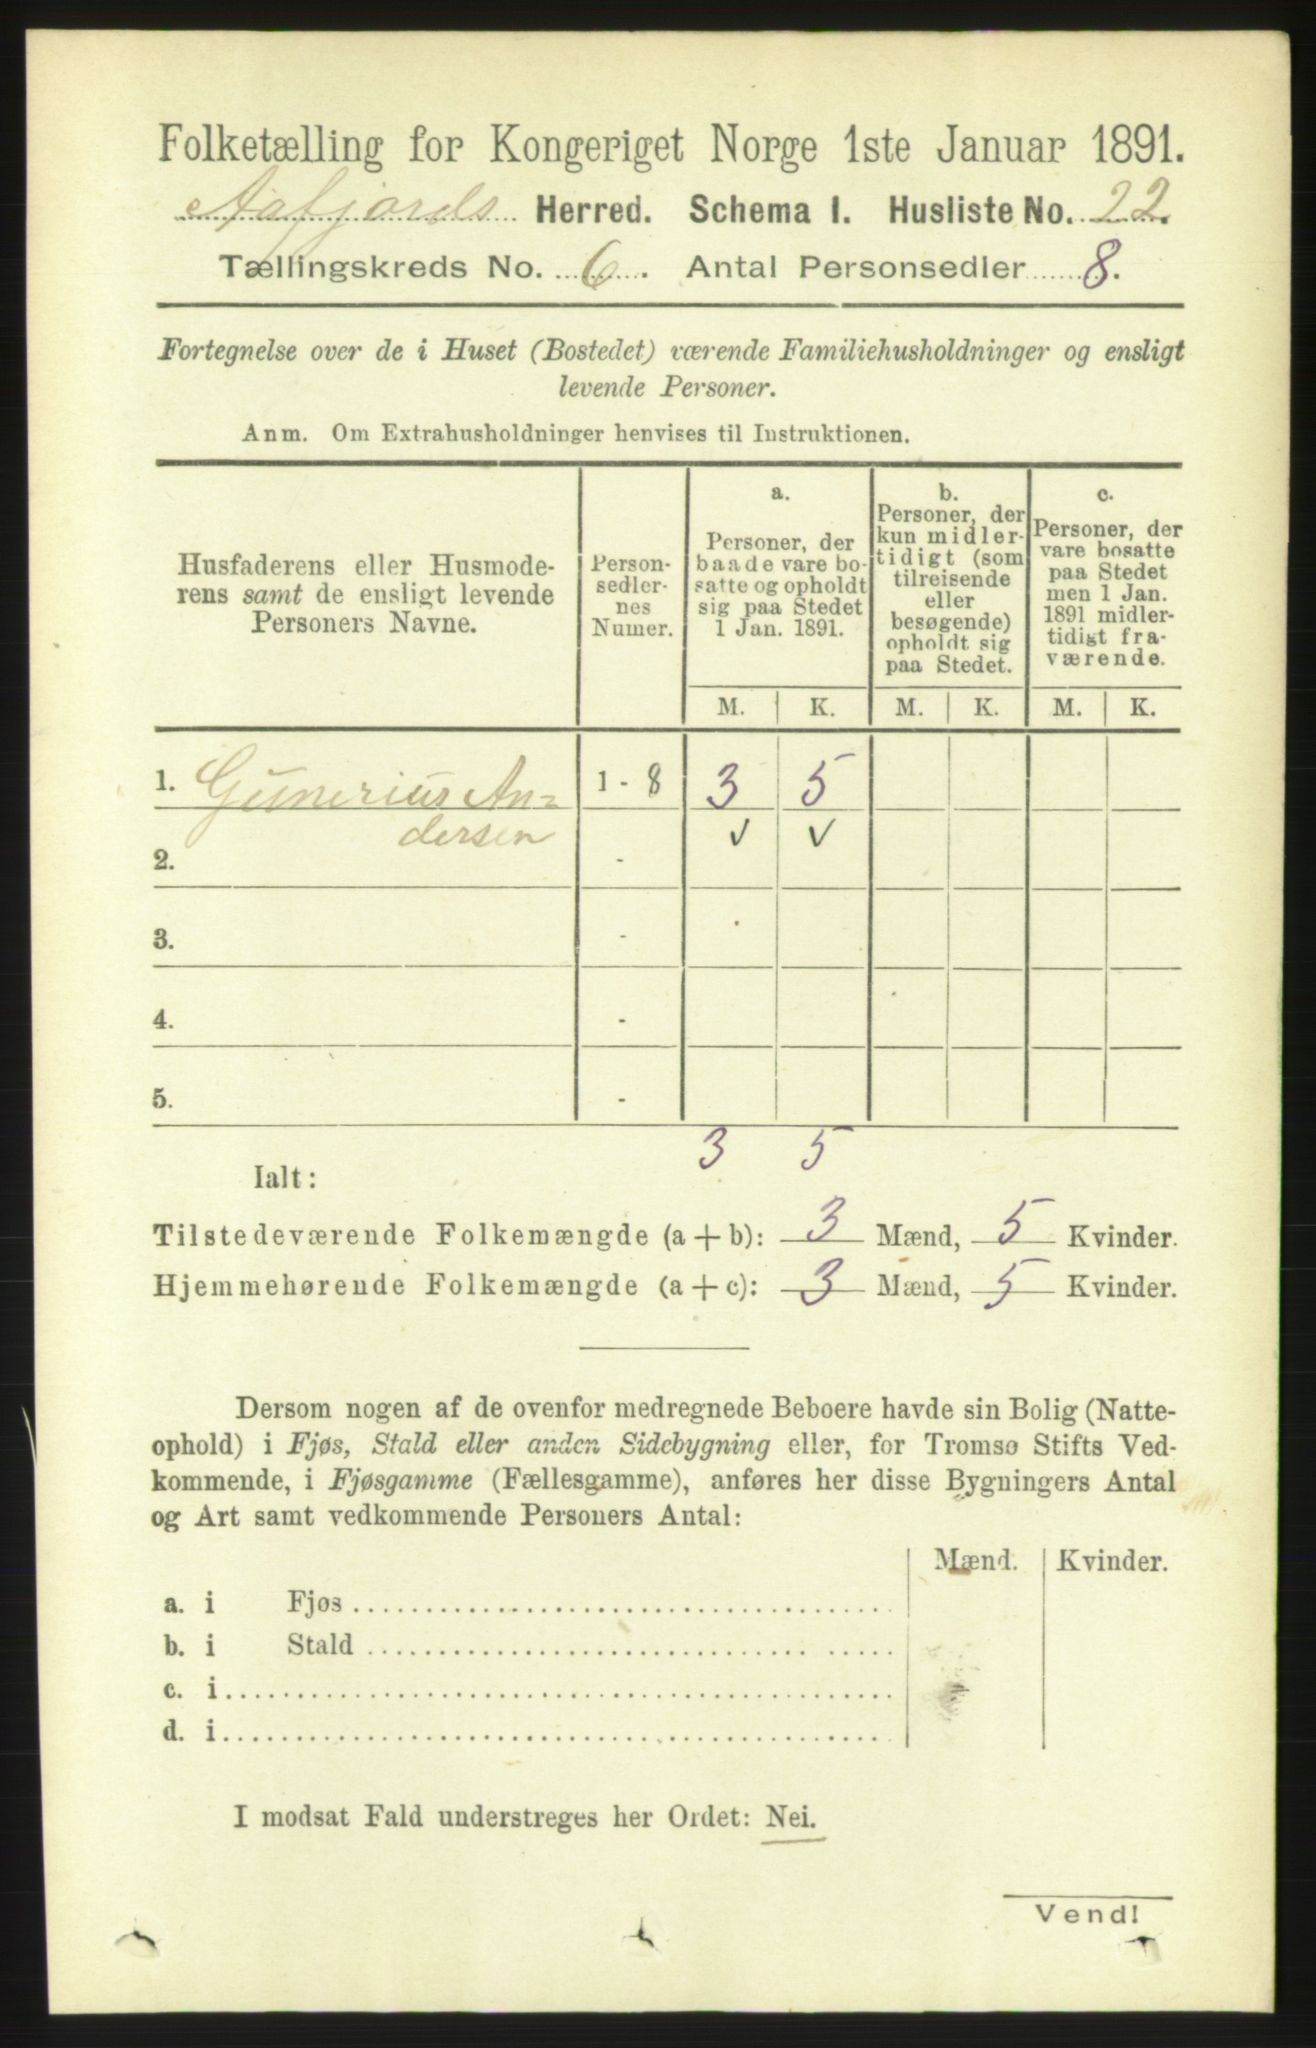 Folketælling for Kongeriget Norge 1ste Januar 1891.
Aafjords Herred. Schema I. Husliste No. 22.
Tællingskreds No. 6. Antal Personsedler 8.
Fortegnelse over de i Huset (Bostedet) værende Familiehusholdninger og ensligt
levende Personer.
Anm. Om Extrahusholdninger henvises til Instruktionen.
Husfaderens eller Husmode-
rens samt de ensligt levende
Personers Navne.
Person-
sedler-
nes
Numer.
a.
Personer, der
baade vare bo-
satte og opholdt
sig paa Stedet
1 Jan. 1891.
b.
Personer, der
kun midler-
tidigt (som
tilreisende
eller
besøgende)
opholdt sig
paa Stedet.
c.
Personer, der
vare bosatte
paa Stedet
men 1 Jan.
1891 midler-
tidigt fra-
værende.
M. K. M. K. M. K.
1. Gunerius An= 1 - 8 3 5
dersen ✓ ✓
2. -
3. -
4. -
5. -
3 5
Ialt:
Tilstedeværende Folkemængde (a + b): 3 Mænd, 5 Kvinder.
Hjemmehørende Folkemængde (a + c): 3 Mænd, 5 Kvinder.
Dersom nogen af de ovenfor medregnede Beboere havde sin Bolig (Natte-
ophold) i Fjøs, Stald eller anden Sidebygning eller, for Tromsø Stifts Ved-
kommende, i Fjøsgamme (Fællesgamme), anføres her disse Bygningers Antal
og Art samt vedkommende Personers Antal:
Mænd. Kvinder.
a. i Fjøs
b. i Stald
c. i
d. i
I modsat Fald understreges her Ordet: Nei.
Vend!